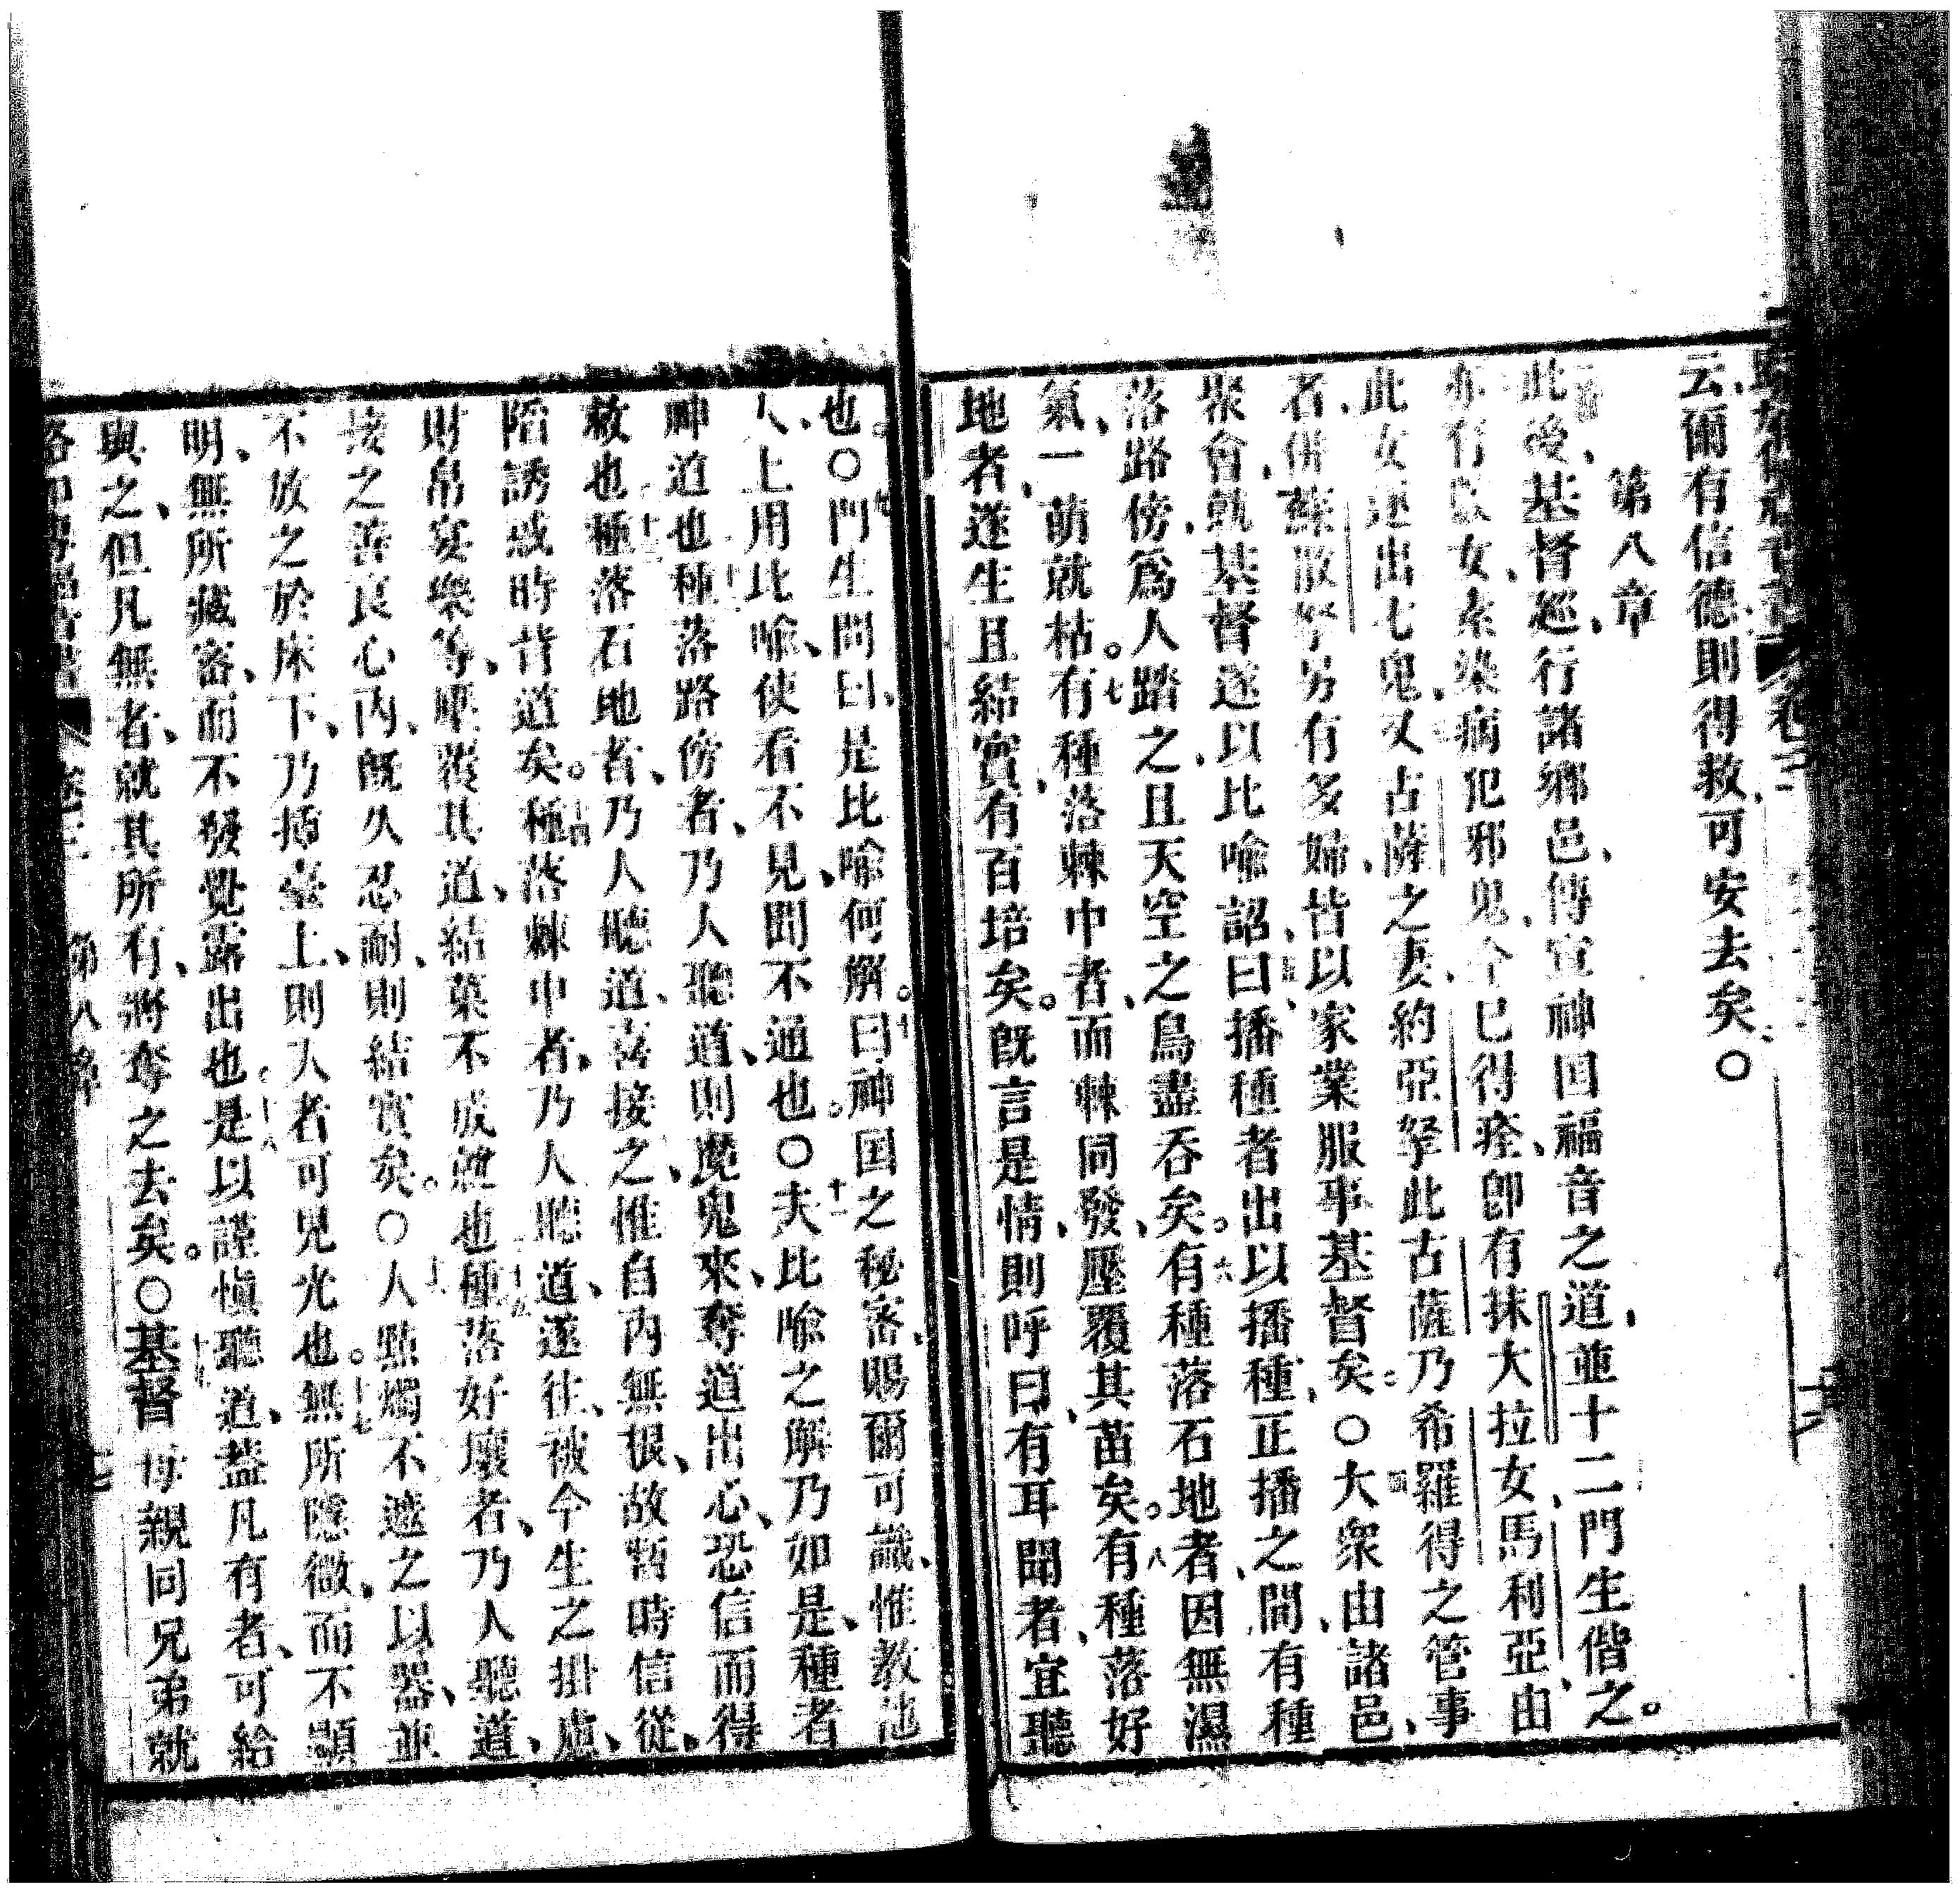 云、爾有信德則得救、可安去矣○
第八章
此後、基督廵行諸鄉邑、傳宣神囯福音之道、並十二門生偕之。
亦有以女、素染病犯邪鬼、今已得痊、卽有抹大拉女、馬利亞、由
此女逐出七鬼、又古薩之妻、約亞拏此古薩乃希羅得之管事
者、併蘇散拏另有多婦、皆以家業服事基督矣○大衆由諸邑、
聚會、就基督遂以比喻詔曰、播種者出以播種、正播之間、有種
落路傍、爲人踏之、且天空之鳥盡吞矣。有種落石地者、因無濕
氣、一萌就枯。有種落棘中者、而棘同發、壓覆其苗矣。有種落好
地者、遂生且結實、有百培矣。旣言是情、則呼曰、有耳聞者、宜聽
也。○門生問曰、是比喻何解。曰神囯之秘密、賜爾可識、惟教他
人、上用比喻、使看不見、聞不通也。○夫比喻之解乃如是、種者
神道也種落路傍者、乃人聽道、則魔鬼來、奪道出心、恐信而得
救也種落石地者、乃人聽道、喜接之、惟自內無根、故暫時信從、
陷誘惑時背道矣。種落棘中者、乃人聽道、遂往、被今生之掛慮、
財帛宴樂等、壓覆其道、結菓不成就也種落好壤者、乃人聽道、
接之善良心內、旣久忍耐、則結實矣。○人點燭不遮之以器、並
不放之於床下、乃插臺上、則入者可見光也。無所隱微、而不顯
明、無所藏密、而不發覺露出也。是以謹愼聽道、葢凡有者、可給
與之、但凡無者、就其所有、將奪之去矣。○基督母親同兄弟就
第八章